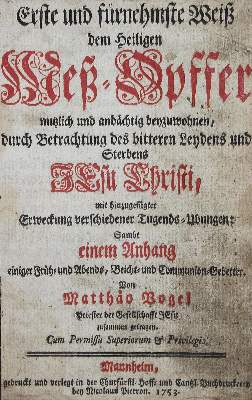 Erste und fürnehmste Weiß
dem Heiligen
Meß-Opffer
nutzlich und andächtig beyzuwohnen,
durch Betrachtung des bitteren Leydens und
Sterbens
JEsu Christi,
mit hinzugesetzter
Erweckung verschiedener Tugends-Ubungen:
Sambt
einem Anhang
einiger Früh- und Abends, Beicht- und Communion-Gebetter.
Von
Matthäo Vogel
Priester der Gesellschafft JEsu
zusammen getragen.
Cum Permissu Superiorum & Privilegio.
Mannheim,
gedruckt und verlegt in der Churfürstl. Hoff- und Cantzl. Buchdruckerey
bey Nicolaus Pierron. 1753